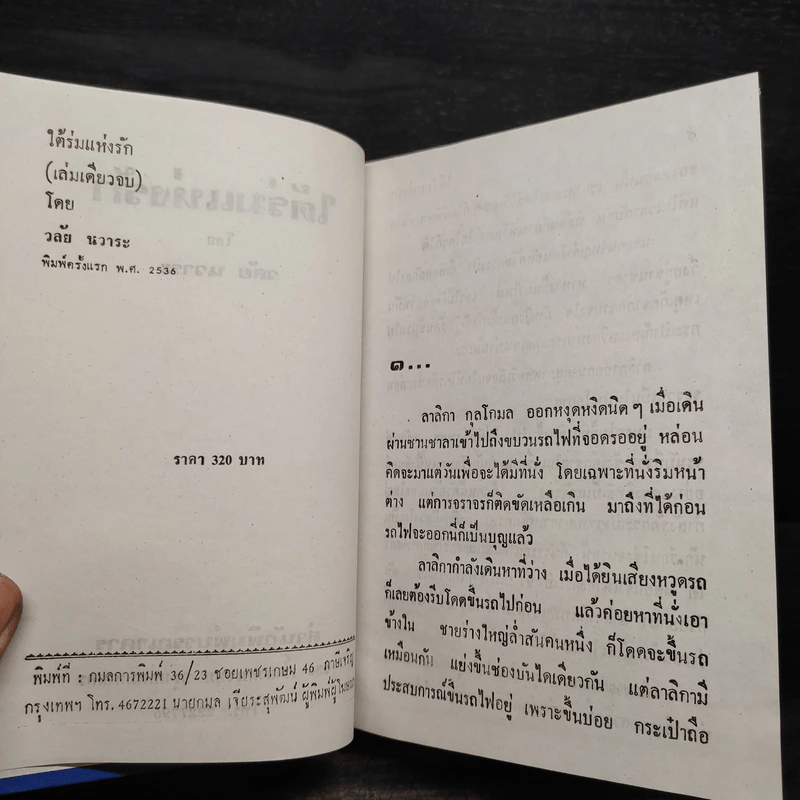 ใต้ร่มแห่งรัก
(เล่มเดียวจบ)
โดย
วลัย นวาระ
พิมพ์ครั้งแรก พ.ศ. 2536
ราคา 320 บาท
พิมพ์ที่ : กมลการพิมพ์ 36/23 ซอยเพชรเกษม 46 ภาษีเจริญ
กรุงเทพฯ โทร. 4672221 นายกมล เจียระสุพัฒน์ ผู้พิมพ์ผู้โฆษณา
๑...
ลาลิกา กุลโกมล ออกหงุดหงิดนิด ๆ เมื่อเดิน
ผ่านชานชาลาเข้าไปถึงขบวนรถไฟที่จอดรออยู่ หล่อน
คิดจะมาแต่วันเพื่อจะได้มีที่นั่ง โดยเฉพาะที่นั่งริมหน้า
ต่าง แต่การจราจรก็ติดขัดเหลือเกิน มาถึงที่ได้ก่อน
รถไฟจะออกนี่ก็เป็นบุญแล้ว
ลาลิกากำลังเดินหาที่ว่าง เมื่อได้ยินเสียงหวูดรถ
ก็เลยต้องรีบโดดขึ้นรถไปก่อน แล้วค่อยหาที่นั่งเอา
ข้างใน ชายร่างใหญ่ล่ำสันคนหนึ่ง ก็โดดจะขึ้นรถ
เหมือนกัน แย่งขึ้นช่องบันไดเดียวกัน แต่ลาลิกามี
ประสบการณ์ขึ้นรถไฟอยู่ เพราะขึ้นบ่อย กระเป๋าถือ